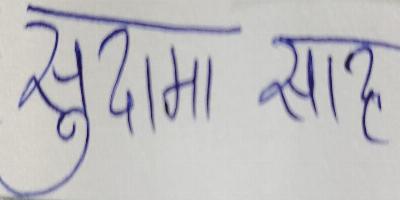 सुदामा साह